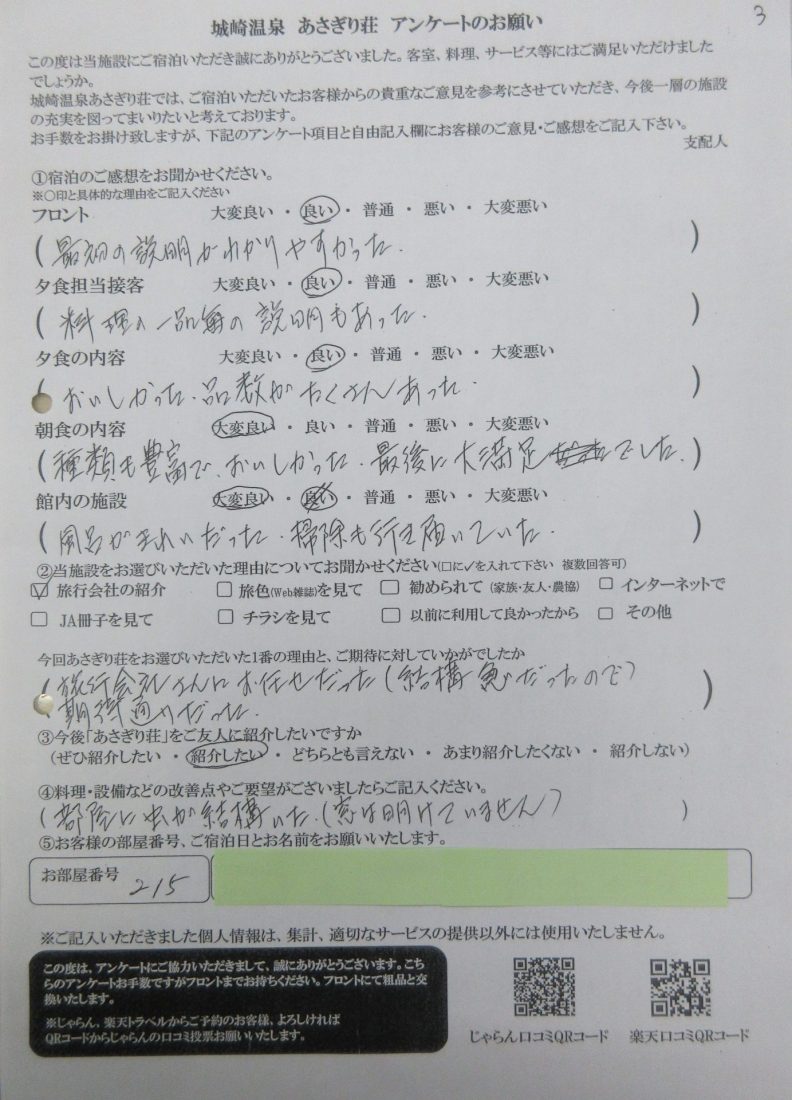 3
城崎温泉　あさぎり荘　アンケートのお願い
この度は当施設にご宿泊いただき誠にありがとうございました。客室、料理、サービス等にはご満足いただけました
でしょうか。
城崎温泉あさぎり荘では、ご宿泊いただいたお客様からの貴重なご意見を参考にさせていただき、今後一層の施設
の充実を図ってまいりたいと考えております。
お手数をお掛け致しますが、下記のアンケート項目と自由記入欄にお客様のご意見・ご感想をご記入下さい。
支配人
①宿泊のご感想をお聞かせください。
※○印と具体的な理由をご記入ください
フロント　大変良い ・ 良い ・ 普通 ・ 悪い ・ 大変悪い
(最初の説明がわかりやすかった.)
夕食担当接客　大変良い ・ 良い ・ 普通 ・ 悪い ・ 大変悪い
(料理の一品毎の説明もあった.)
夕食の内容　大変良い ・ 良い ・ 普通 ・ 悪い ・ 大変悪い
(おいしかった.品数がたくさんあった.)
朝食の内容　大変良い ・ 良い ・ 普通 ・ 悪い ・ 大変悪い
(種類も豊富で、おいしかった.最後に大満足でした.)
館内の施設　大変良い ・ 良い ・ 普通 ・ 悪い ・ 大変悪い
(風呂がきれいだった.掃除も行き届いていた.)
②当施設をお選びいただいた理由についてお聞かせください(□に✓を入れて下さい　複数回答可)
☑ 旅行会社の紹介　□ 旅色(Web雑誌)を見て　□ 勧められて (家族・友人・農協)　□ インターネットで
□ JA冊子を見て　□ チラシを見て　□ 以前に利用して良かったから　□ その他
今回あさぎり荘をお選びいただいた1番の理由と、ご期待に対していかがでしたか
(旅行会社さんにお任せだった(結構急だったので)
期待通りだった.)
③今後「あさぎり荘」をご友人に紹介したいですか
(ぜひ紹介したい ・ 紹介したい ・ どちらとも言えない ・ あまり紹介したくない ・ 紹介しない)
④料理・設備などの改善点やご要望がございましたらご記入ください。
(部屋に虫が結構いた.(窓は開けていません))
⑤お客様の部屋番号、ご宿泊日とお名前をお願いいたします。
お部屋番号
215
※ご記入いただきました個人情報は、集計、適切なサービスの提供以外には使用いたしません。
この度は、アンケートにご協力いただきまして、誠にありがとうございます。こち
らのアンケートお手数ですがフロントまでお持ちください。フロントにて粗品と交
換いたします。
※じゃらん、楽天トラベルからご予約のお客様、よろしければ
QRコードからじゃらんの口コミ投票お願いいたします。
じゃらん口コミQRコード　楽天口コミQRコード